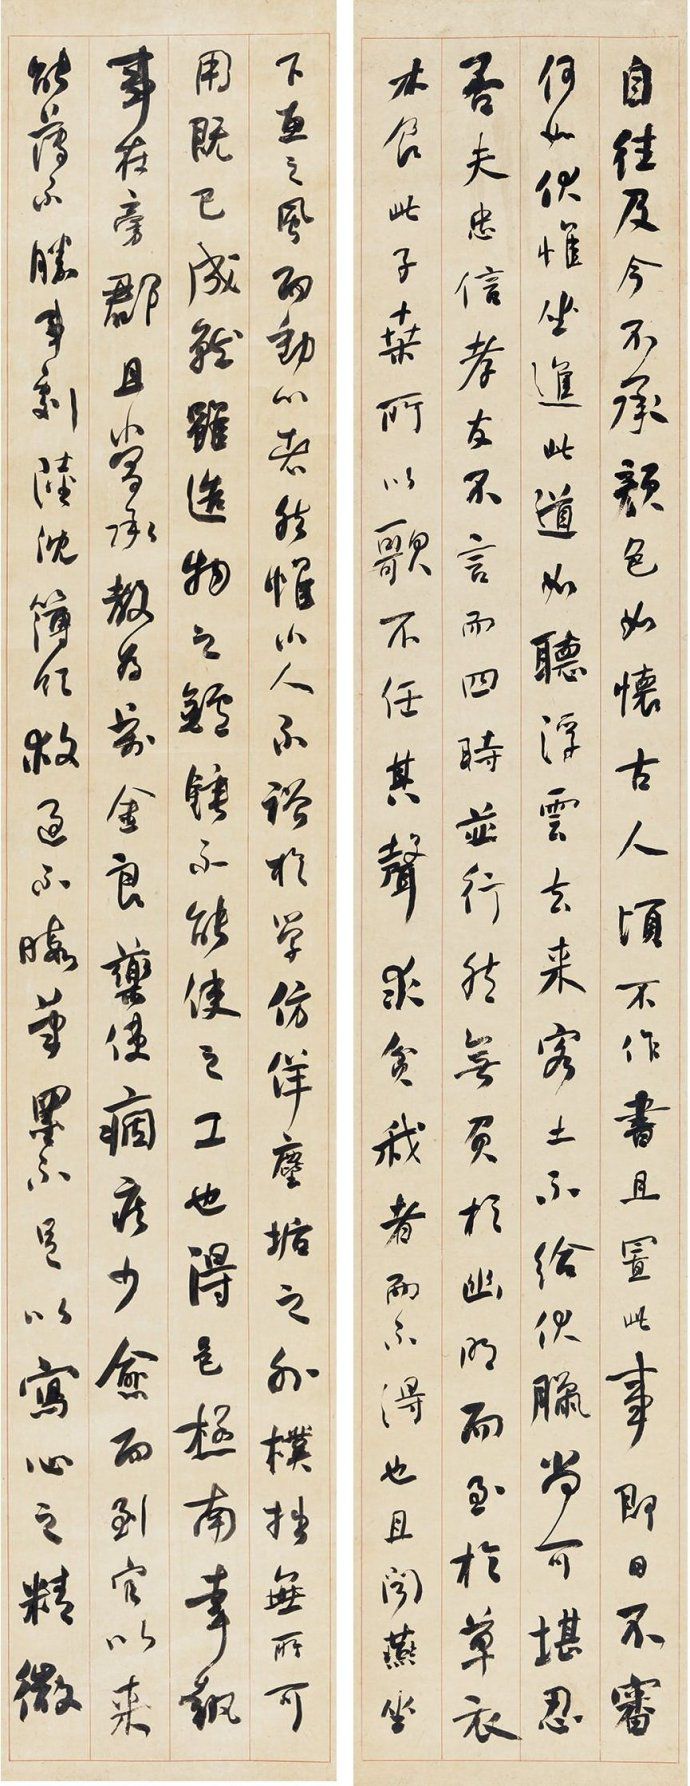 自往及今不承顏色如懷古人頃不作書且置此事即日不審
何如伏惟坐進此道如聽浮雲去来客土不給伏臘尚可堪忍
否夫忠信孝友不言而四時並行然無負於幽明而至於草衣
木食此子桒所以歌不任其聲求貧我者而不得也且聞燕坐
下直之風而動心者然惟小人不谘於学仿佯塵垢之外樸拙無所可
用既已成就雖造物之鑪錘不能使之工也得邑極南幸執
事在旁郡且當承教為篤金良藥使痼疾少愈而到官以来
能薄不勝事劇陸沈簿領救過不暇筆墨不足以寫心之精微